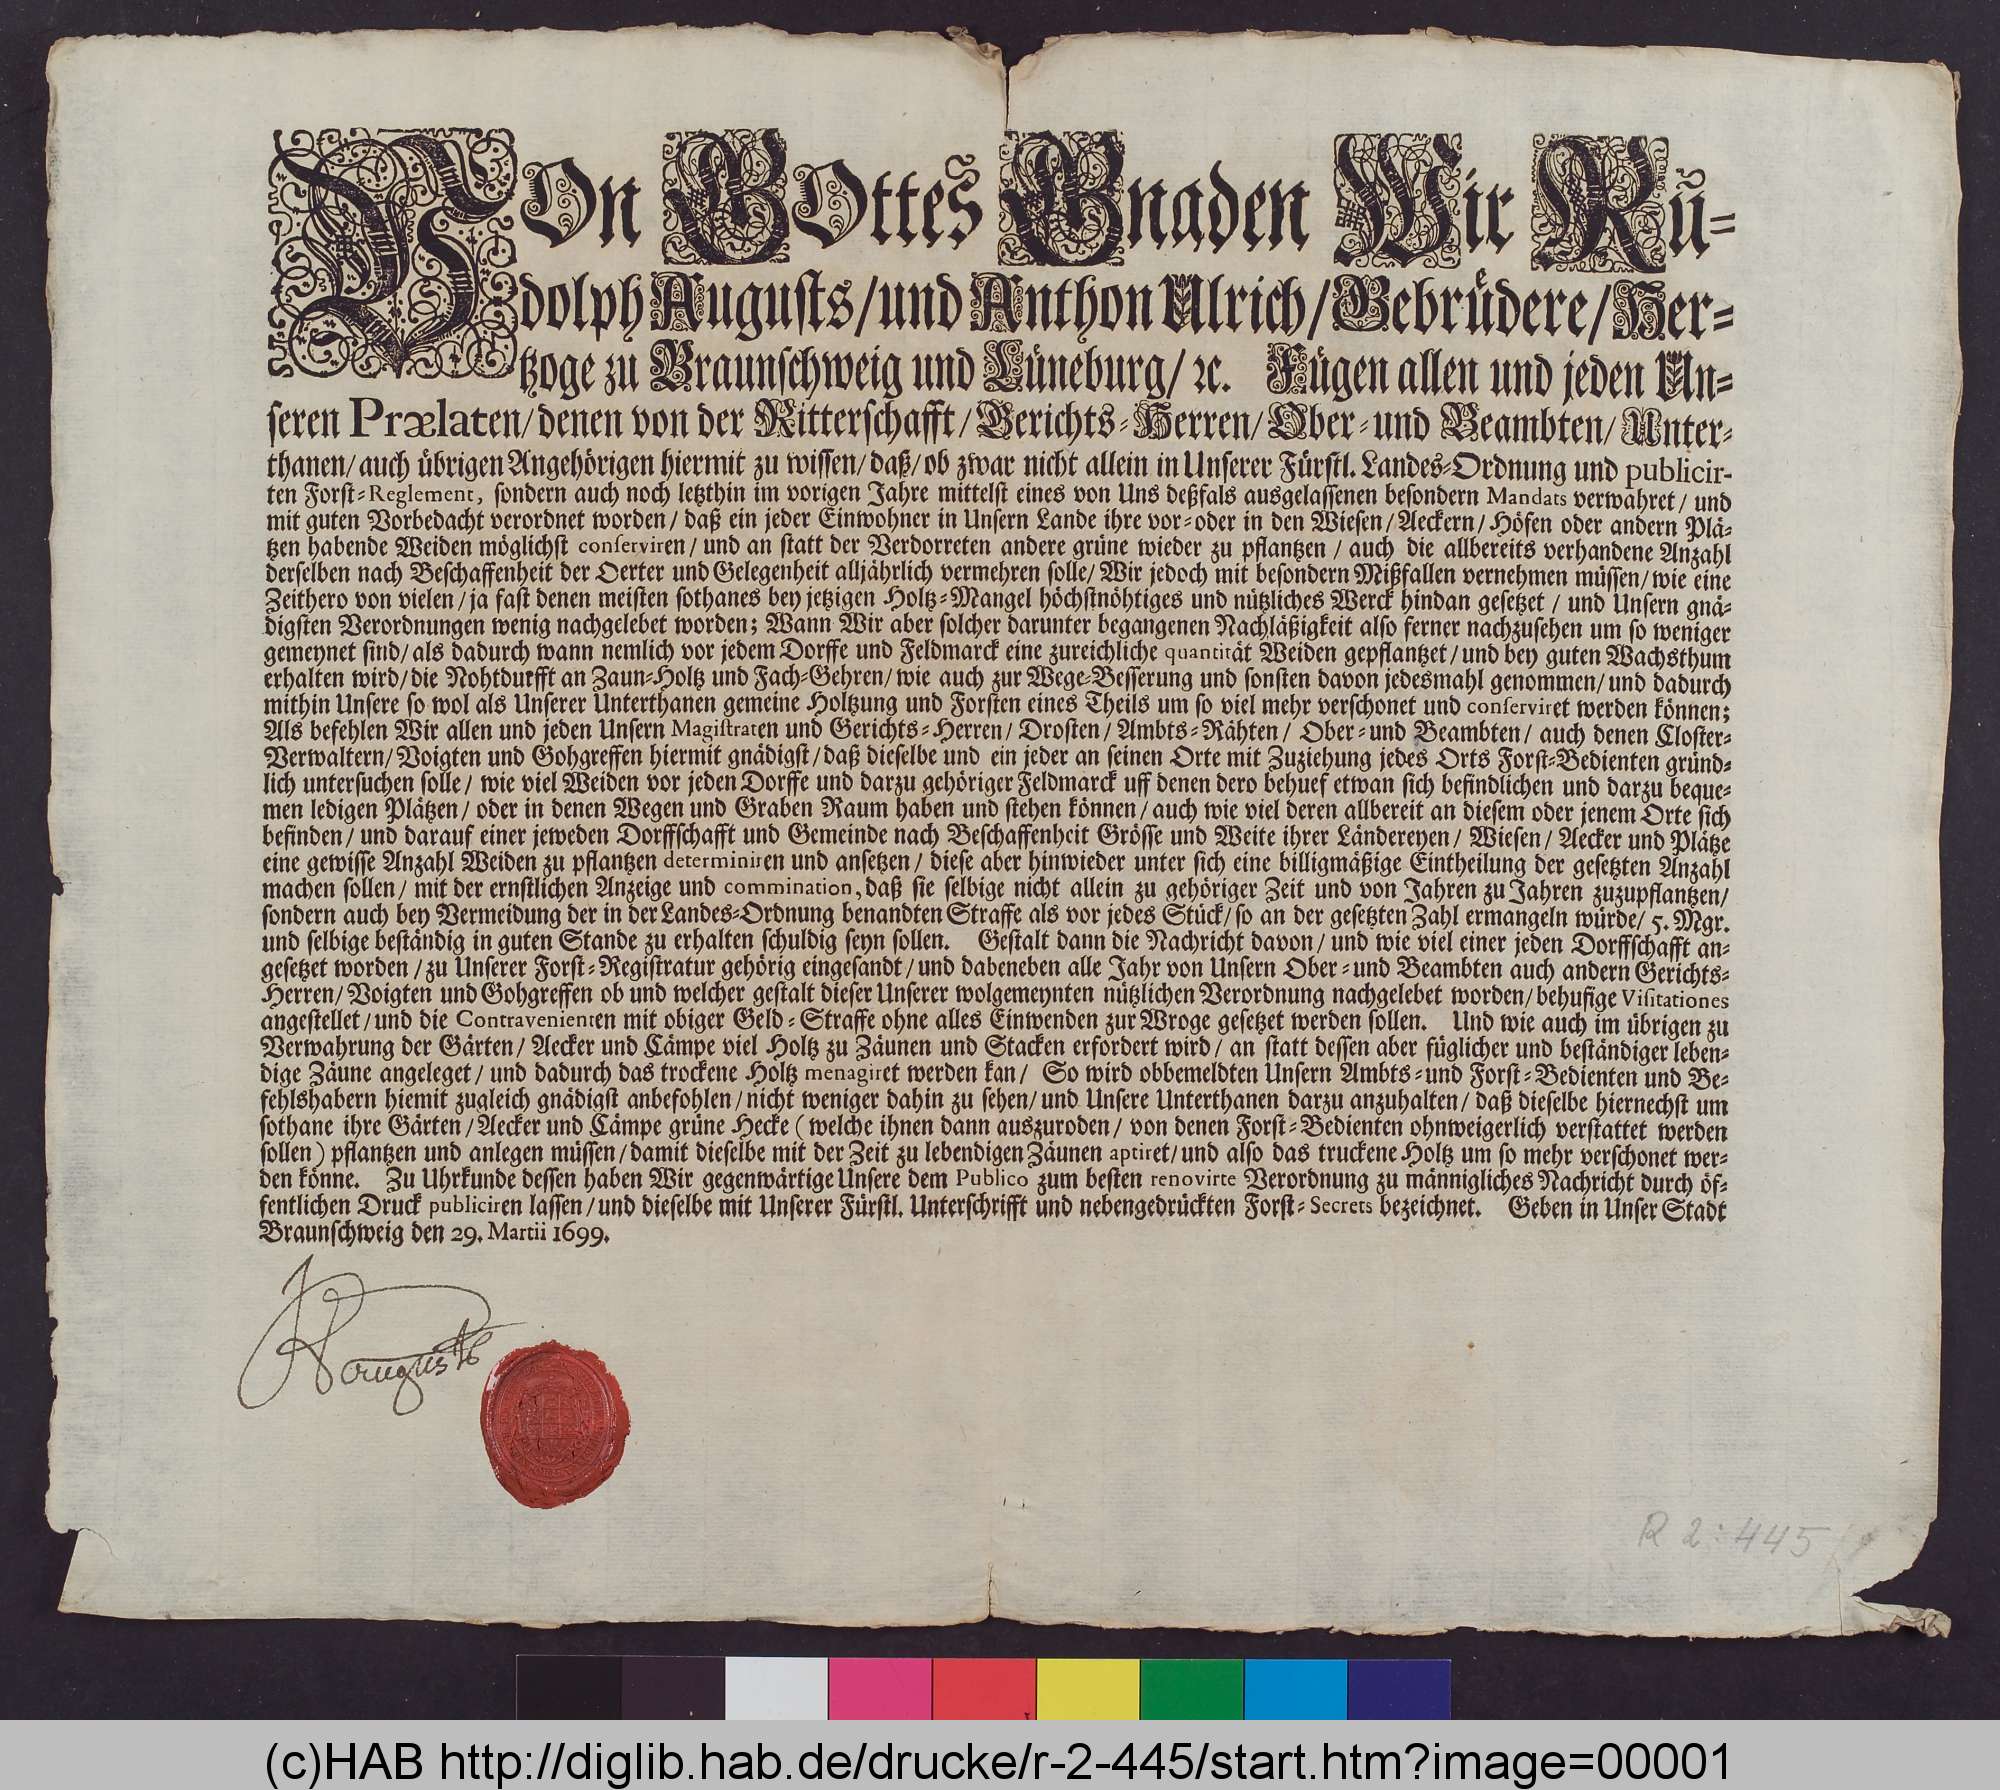 VOn GOttes Gnaden Wir Ru-
dolph Augusts/und Anthon Ulrich/Gebrüdere/Her-
tzoge zu Braunschweig und Lüneburg/ ꝛc. Fügen allen und jeden Un-
seren Prælaten/denen von der Ritterschafft/Gerichts-Herren/Ober-und Beambten/Unter-
thanen/auch übrigen Angehörigen hiermit zu wissen/daß/ob zwar nicht allein in Unserer Fürstl. Landes-Ordnung und publicir-
ten Forst-Reglement, sondern auch noch letzthin im vorigen Jahre mittelst eines von Uns deßfals ausgelassenen besondern Mandats verwahret/ und
mit guten Vorbedacht verordnet worden/ daß ein jeder Einwohner in Unsern Lande ihre vor-oder in den Wiesen/Aeckern/Höfen oder andern Plä-
tzen habende Weiden möglichst conserviren/ und an statt der Verdorreten andere grüne wieder zu pflantzen/ auch die allbereits verhandene Anzahl
derselben nach Beschaffenheit der Oerter und Gelegenheit alljährlich vermehren solle/Wir jedoch mit besondern Mißfallen vernehmen müssen/wie eine
Zeithero von vielen/ja fast denen meisten sothanes bey jetzigen Holtz-Mangel höchstnöhtiges und nützliches Werck hindan gesetzet/ und Unsern gnä-
digsten Verordnungen wenig nachgelebet worden; Wann Wir aber solcher darunter begangenen Nachläßigkeit also ferner nachzusehen um so weniger
gemeynet sind/als dadurch wann nemlich vor jedem Dorffe und Feldmarck eine zureichliche quantität Weiden gepflantzet/und bey guten Wachsthum
erhalten wird/die Nohtdurfft an Zaun-Holtz und Fach-Gehren/wie auch zur Wege-Besserung und sonsten davon jedesmahl genommen/und dadurch
mithin Unsere so wol als Unserer Unterthanen gemeine Holtzung und Forsten eines Theils um so viel mehr verschonet und conserviret werden können;
Als befehlen Wir allen und jeden Unsern Magistraten und Gerichts-Herren/ Drosten/ Ambts-Rähten/ Ober-und Beambten/ auch denen Closter-
Verwaltern/Voigten und Gohgreffen hiermit gnädigst/daß dieselbe und ein jeder an seinen Orte mit Zuziehung jedes Orts Forst-Bedienten gründ-
lich untersuchen solle/ wie viel Weiden vor jeden Dorffe und darzu gehöriger Feldmarck uff denen dero behuef etwan sich befindlichen und darzu beque-
men ledigen Plätzen/ oder in denen Wegen und Graben Raum haben und stehen können/auch wie viel deren allbereit an diesem oder jenem Orte sich
befinden/ und darauf einer jeweden Dorffschafft und Gemeinde nach Beschaffenheit Grösse und Weite ihrer Ländereyen/ Wiesen/ Aecker und Plätze
eine gewisse Anzahl Weiden zu pflantzen determiniren und ansetzen/ diese aber hinwieder unter sich eine billigmäßige Eintheilung der gesetzten Anzahl
machen sollen/ mit der ernstlichen Anzeige und commination, daß sie selbige nicht allein zu gehöriger Zeit und von Jahren zu Jahren zuzupflantzen/
sondern auch bey Vermeidung der in der Landes-Ordnung benandten Straffe als vor jedes Stück/so an der gesetzten Zahl ermangeln würde/ 5. Mgr.
und selbige beständig in guten Stande zu erhalten schuldig seyn sollen. Gestalt dann die Nachricht davon/ und wie viel einer jeden Dorffschafft an-
gesetzet worden/zu Unserer Forst-Registratur gehörig eingesandt/und dabeneben alle Jahr von Unsern Ober-und Beambten auch andern Gerichts-
Herren/ Voigten und Gohgreffen ob und welcher gestalt dieser Unserer wolgemeynten nützlichen Verordnung nachgelebet worden/behufige Visitationes
angestellet/und die Contravenienten mit obiger Geld-Straffe ohne alles Einwenden zur Wroge gesetzet werden sollen. Und wie auch im übrigen zu
Verwahrung der Gärten/ Aecker und Cämpe viel Holtz zu Zäunen und Stacken erfordert wird/ an statt dessen aber füglicher und beständiger leben-
dige Zäune angeleget/ und dadurch das trockene Holtz menagiret werden kan/ So wird obbemeldten Unsern Ambts-und Forst-Bedienten und Be-
fehlshabern hiemit zugleich gnädigst anbefohlen/nicht weniger dahin zu sehen/und Unsere Unterthanen darzu anzuhalten/daß dieselbe hiernechst um
sothane ihre Gärten/Aecker und Cämpe grüne Hecke (welche ihnen dann auszuroden/ von denen Forst-Bedienten ohnweigerlich verstattet werden
sollen) pflantzen und anlegen müssen/damit dieselbe mit der Zeit zu lebendigen Zäunen aptiret/und also das truckene Holtz um so mehr verschonet wer-
den könne. Zu Uhrkunde dessen haben Wir gegenwärtige Unsere dem Publico zum besten renovirte Verordnung zu männigliches Nachricht durch öf-
fentlichen Druck publiciren lassen/und dieselbe mit Unserer Fürstl. Unterschrifft und nebengedrückten Forst-Secrets bezeichnet. Geben in Unser Stadt
Braunschweig den 29. Martii 1699.
R 2:445
(c)HAB http://diglib.hab.de/drucke/r-2-445/start.htm?image=00001